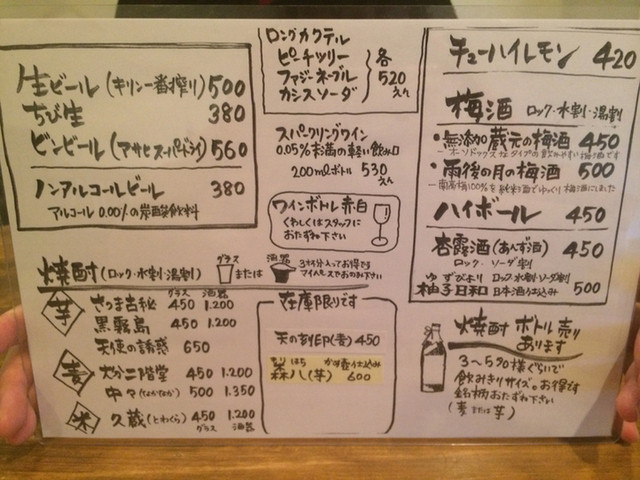 生ビール(キリン一番搾り) 500
ちび生 380
ビンビール(アサヒスーパードライ) 560
ノンアルコールビール 380
アルコール0.00%の炭酸飲料
ロングカクテル
ピーチツリー
ファジーネーブル
カシスソーダ
各
520
えん
スパークリングワイン
0.05%未満の軽い飲み口
200mlボトル 530
えん
ワインボトル 赤白
くわしくはスタッフに
おたずね下さい
チューハイレモン 420
梅酒 ロック・水割・湯割
・無添加 蔵元の梅酒 450
・雨後の月の梅酒 500
ハイボール 450
杏露酒(あんず酒) 450
ロック・ソーダ割
ゆずびより ロック・水割・ソーダ割
柚子日和 日本酒仕込み 500
焼酎(ロック・水割・湯割) グラス または 酒器
芋
グラス 酒器
さつま古秘 450 1.200
黒霧島 450 1.200
天使の誘惑 650
麦
大分二階堂 450 1.200
中々(なかなか) 500 1.350
米
久蔵(とわくら) 450 1.200
グラス 酒器
在庫限りです
天の刻印(麦) 450
もり はち かめ壺仕込み
森八(芋) 600
焼酎 ボトル売り
あります
3〜5名様ぐらいで
飲みきりサイズ。お得です
銘柄おたずね下さい
(麦または芋)